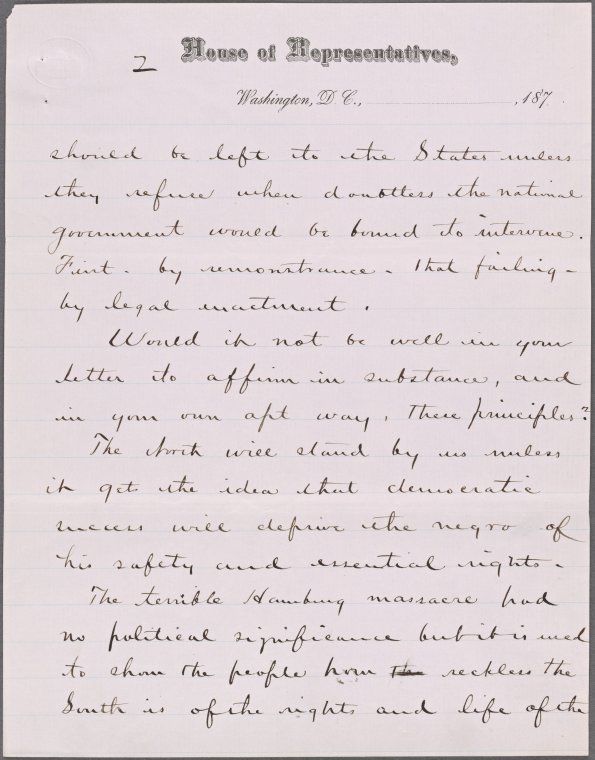 House of Representatives,
2
Washington, D C., , 187 .
should be left to the States unless
they refuse when doubtless the national
government would be bound to intervene.
First - by remonstrance - that failing -
by legal enactment.
Would it not be well in your
letter to affirm in substance, and
in your own apt way, these principles?
The North will stand by us unless
it gets the idea that democratic
success will deprive the negro of
his safety and essential rights -
The terrible Hamburg massacre had
no political significance but it is used
to show the people how the reckless the
South is of the rights and life of the